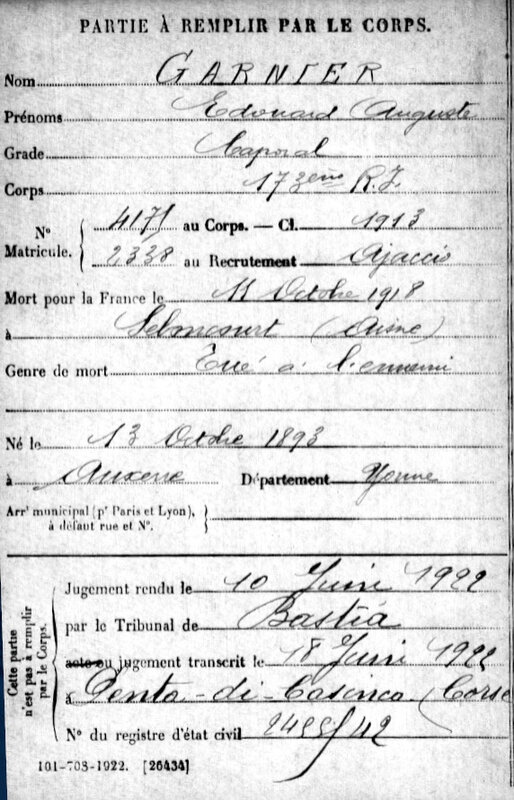 PARTIE À REMPLIR PAR LE CORPS.
Nom GARNIER
Prénoms Edouard Auguste
Grade Caporal
Corps 173eme R.I.
N° Matricule. 4175 au Corps. — Cl. 1913
2338 au Recrutement Ajaccio
Mort pour la France le 11 Octobre 1918
à (Aisne)
Genre de mort Tué à l'ennemi
Né le 13 Octobre 1893
à Auxerre Département Yonne
Arrt municipal (pr Paris et Lyon),
à défaut rue et N°.
Cette partie
n'est pas à remplir
par le Corps.
Jugement rendu le 10 Juin 1922
par le Tribunal de Bastia
acte ou jugement transcrit le 18 Juin 1922
à Penta-di-Casinca (Corse
N° du registre d'état civil 2455/42
101-708-1922. [26434]